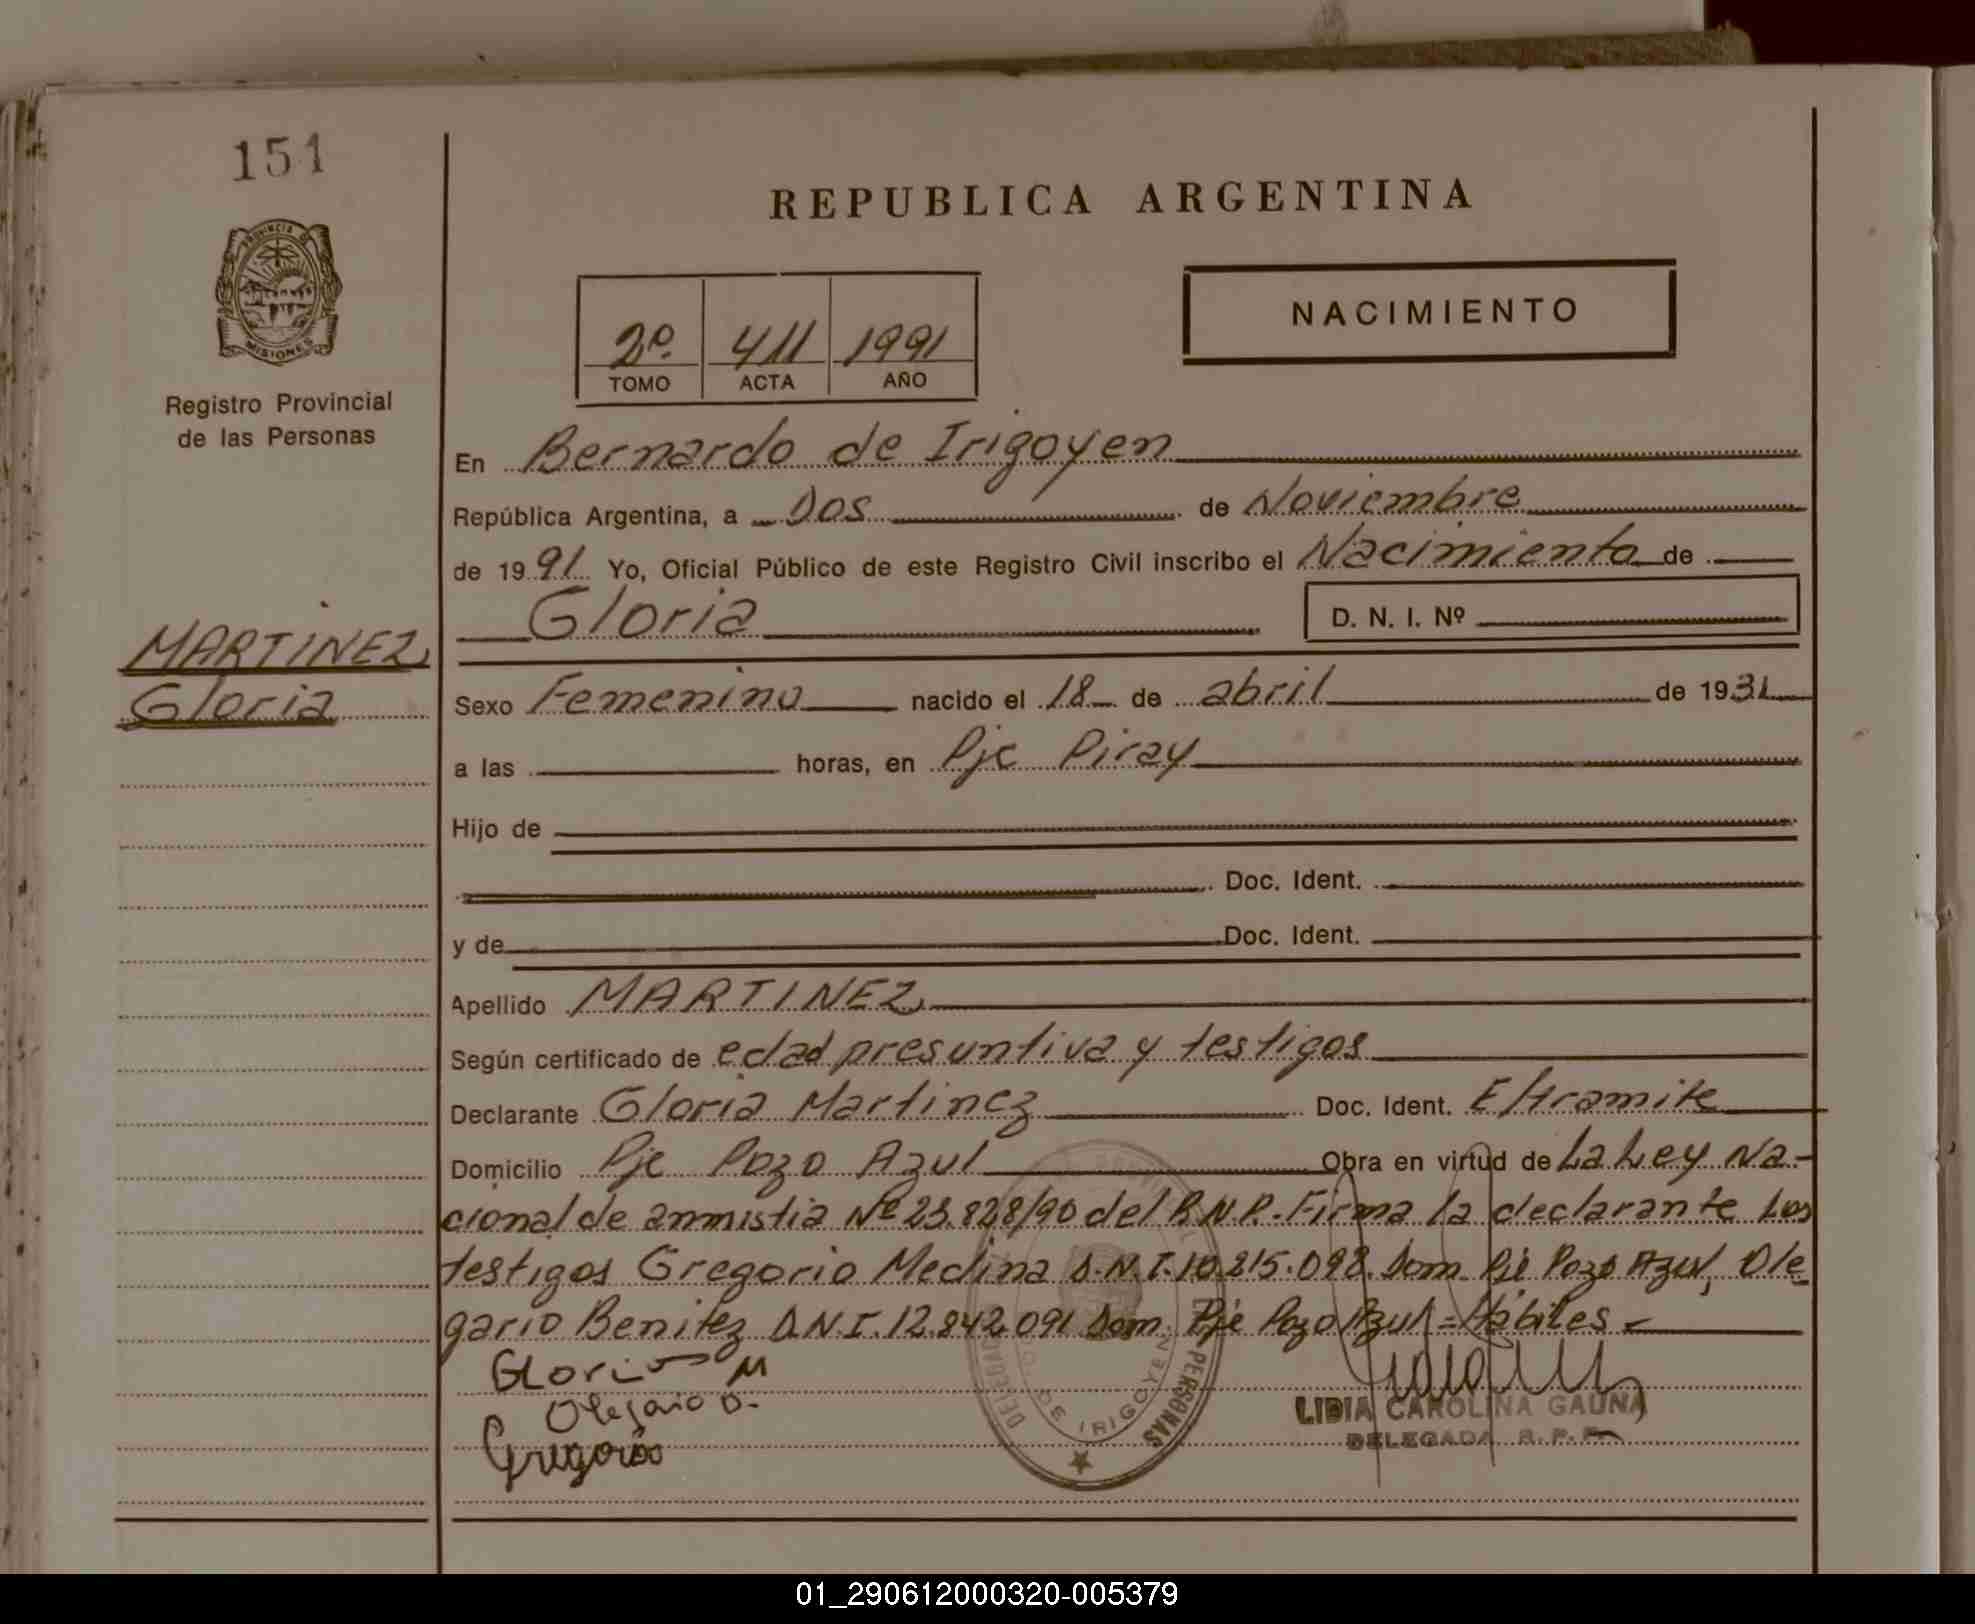 151
REPUBLICA ARGENTINA
PROVINCIA DE
MISIONES
Registro Provincial
de las Personas
2º 411 1991
TOMO ACTA AÑO
NACIMIENTO
En Bernardo de Irigoyen
República Argentina, a Dos de Noviembre
de 1991 Yo, Oficial Público de este Registro Civil inscribo el Nacimiento de
Gloria D. N. I. Nº
MARTINEZ
Gloria
Sexo Femenino nacido el 18 de abril de 1931
a las horas, en Pje Piray
Hijo de
Doc. Ident.
y de Doc. Ident.
Apellido MARTINEZ
Según certificado de edad presuntiva y testigos
Declarante Gloria Martinez Doc. Ident. E/tramite
Domicilio Pje Pozo Azul Obra en virtud de La Ley Na-
cional de anmistia Nº 23.828/90 del R.N.P.- Firma la declarante Los
testigos Gregorio Medina D.N.I. 10.215.098. Dom. Pje Pozo Azul, Ole
gario Benitez D.N.I. 12.842.091 Dom. Pje Pozo Azul = Hábiles -
Gloria M
Olegario
Gregorio
DE IRIGOYEN
PERSONAS
LIDIA CAROLINA GAUNA
DELEGADA R.P.P.
01_290612000320-005379